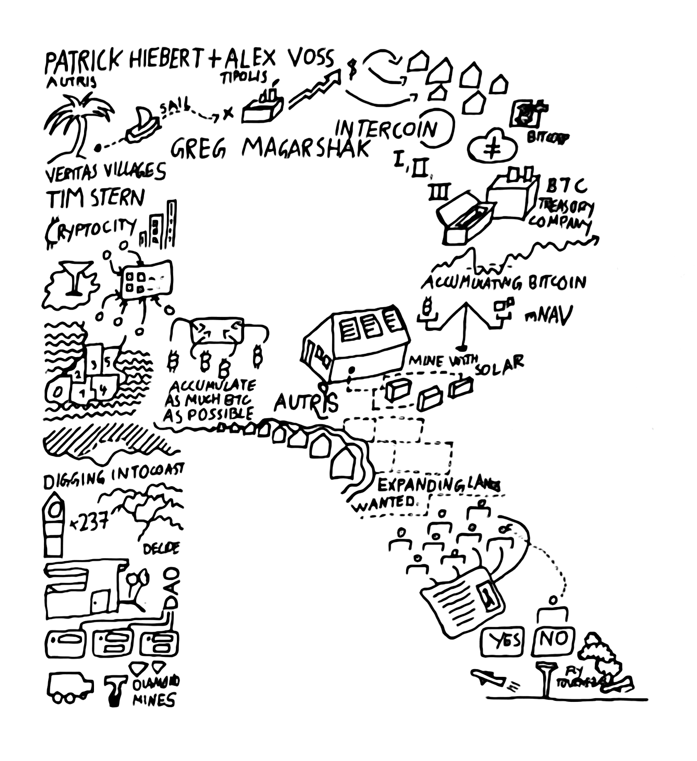 PATRICK HIEBERT + ALEX VOSS
AUTRIS
TIPOLIS
$
SAIL
X
INTERCOIN
GREG MAGARSHAK
BITCORP
VERITAS VILLAGES
I, II,
III
TIM STERN
BTC
TREASURY
COMPANY
CRYPTOCITY
ACCUMULATING BITCOIN
mNAV
MINE WITH
SOLAR
3 5
0 1 4
ACCUMULATE
AS MUCH BTC
AS POSSIBLE
AUTRIS
DIGGING INTO COAST
EXPANDING LAND
WANTED.
+237
DECIDE
DAO
YES
NO
FLY
DIAMOND
MINES